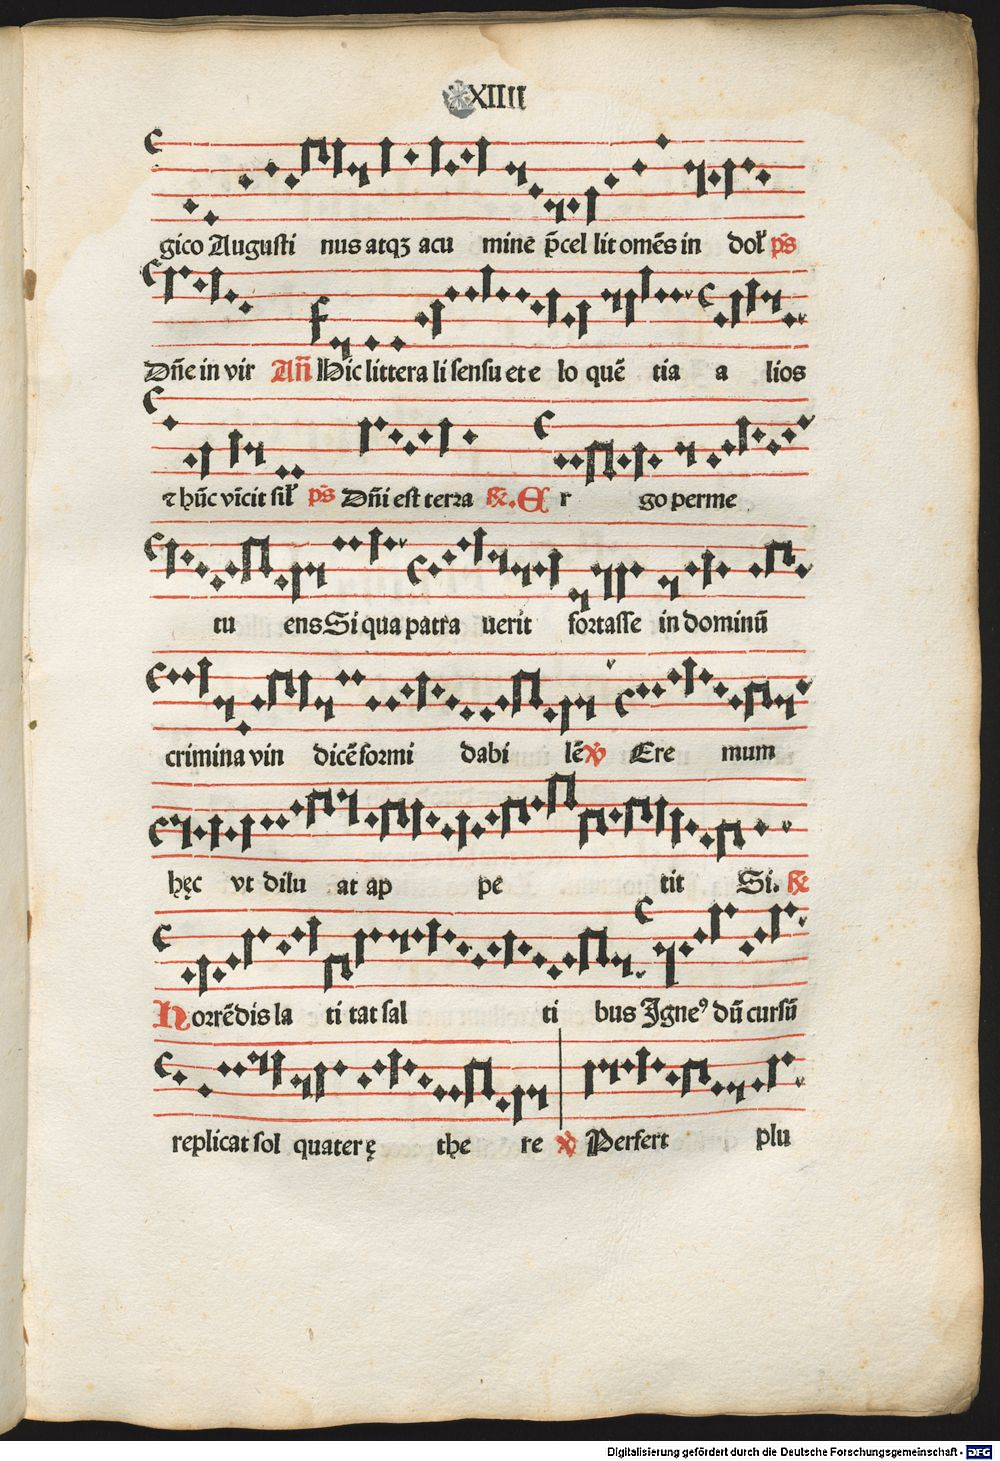 XIIII
gico Augusti nus atqꝫ acu mine p̄cel lit omēs in dol' p̄s
Dn̄e in vir An̄ Hic littera li sensu et e lo quē tia a lios
⁊ hūc vīcit sil' p̄s Dn̄i est terra ℟. E r go perme
tu ens Si qua patra uerit fortasse in dominū
crimina vin dicē formi dabi lē ℣ Ere mum
hęc vt dilu at ap pe tit Si. ℟
Horrēdis la ti tat sal ti bus Igneꝰ dū cursū
replicat sol quater ę the re ℣ Perfert plu
Digitalisierung gefördert durch die Deutsche Forschungsgemeinschaft - DFG